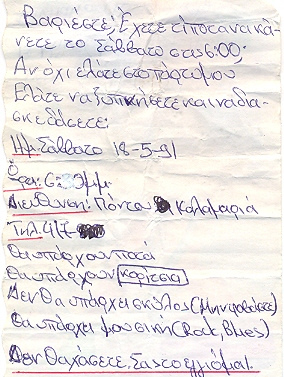 Βαριέστε; Έχετε τίποτα να κά-
νετε το Σάββατο στις 6:00;
Αν όχι ελάτε στο πάρτυ μου
Ελάτε να ξυπνήσετε και να δια-
σκεδάσετε:
Ημ. Σάββατο 18-5-91
Ώρα: 6: μμ.
Διεύθυνση: Πόντου Καλαμαριά
Τηλ. 417-
Θα υπάρχουν ποτά
Θα υπάρχουν κορίτσια
Δεν θα υπάρχει σκύλος (Μην φοβάστε)
Θα υπάρχει μουσική (Rock, Blues)
Δεν θα χάσετε, Σας το εγγυόμαι.